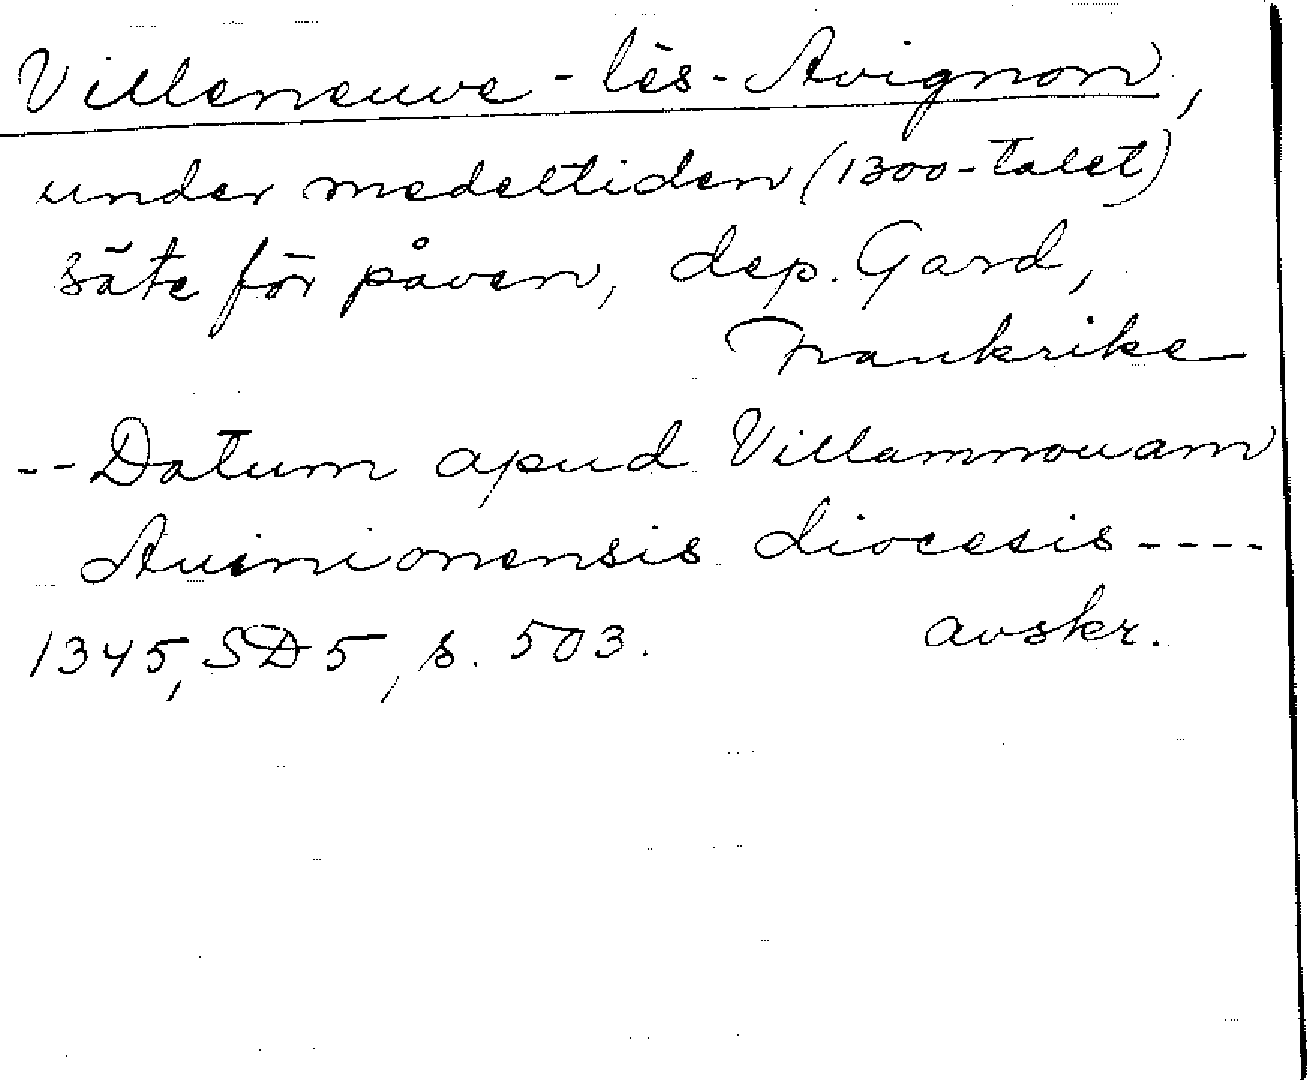 Villeneuve-lès-Avignon,
under medeltiden (1300-talet)
säte för påven, dep. Gard,
Frankrike
-- Datum apud Villamnouam
Auinionensis diocesis ----
1345, SD 5, s. 503. avskr.